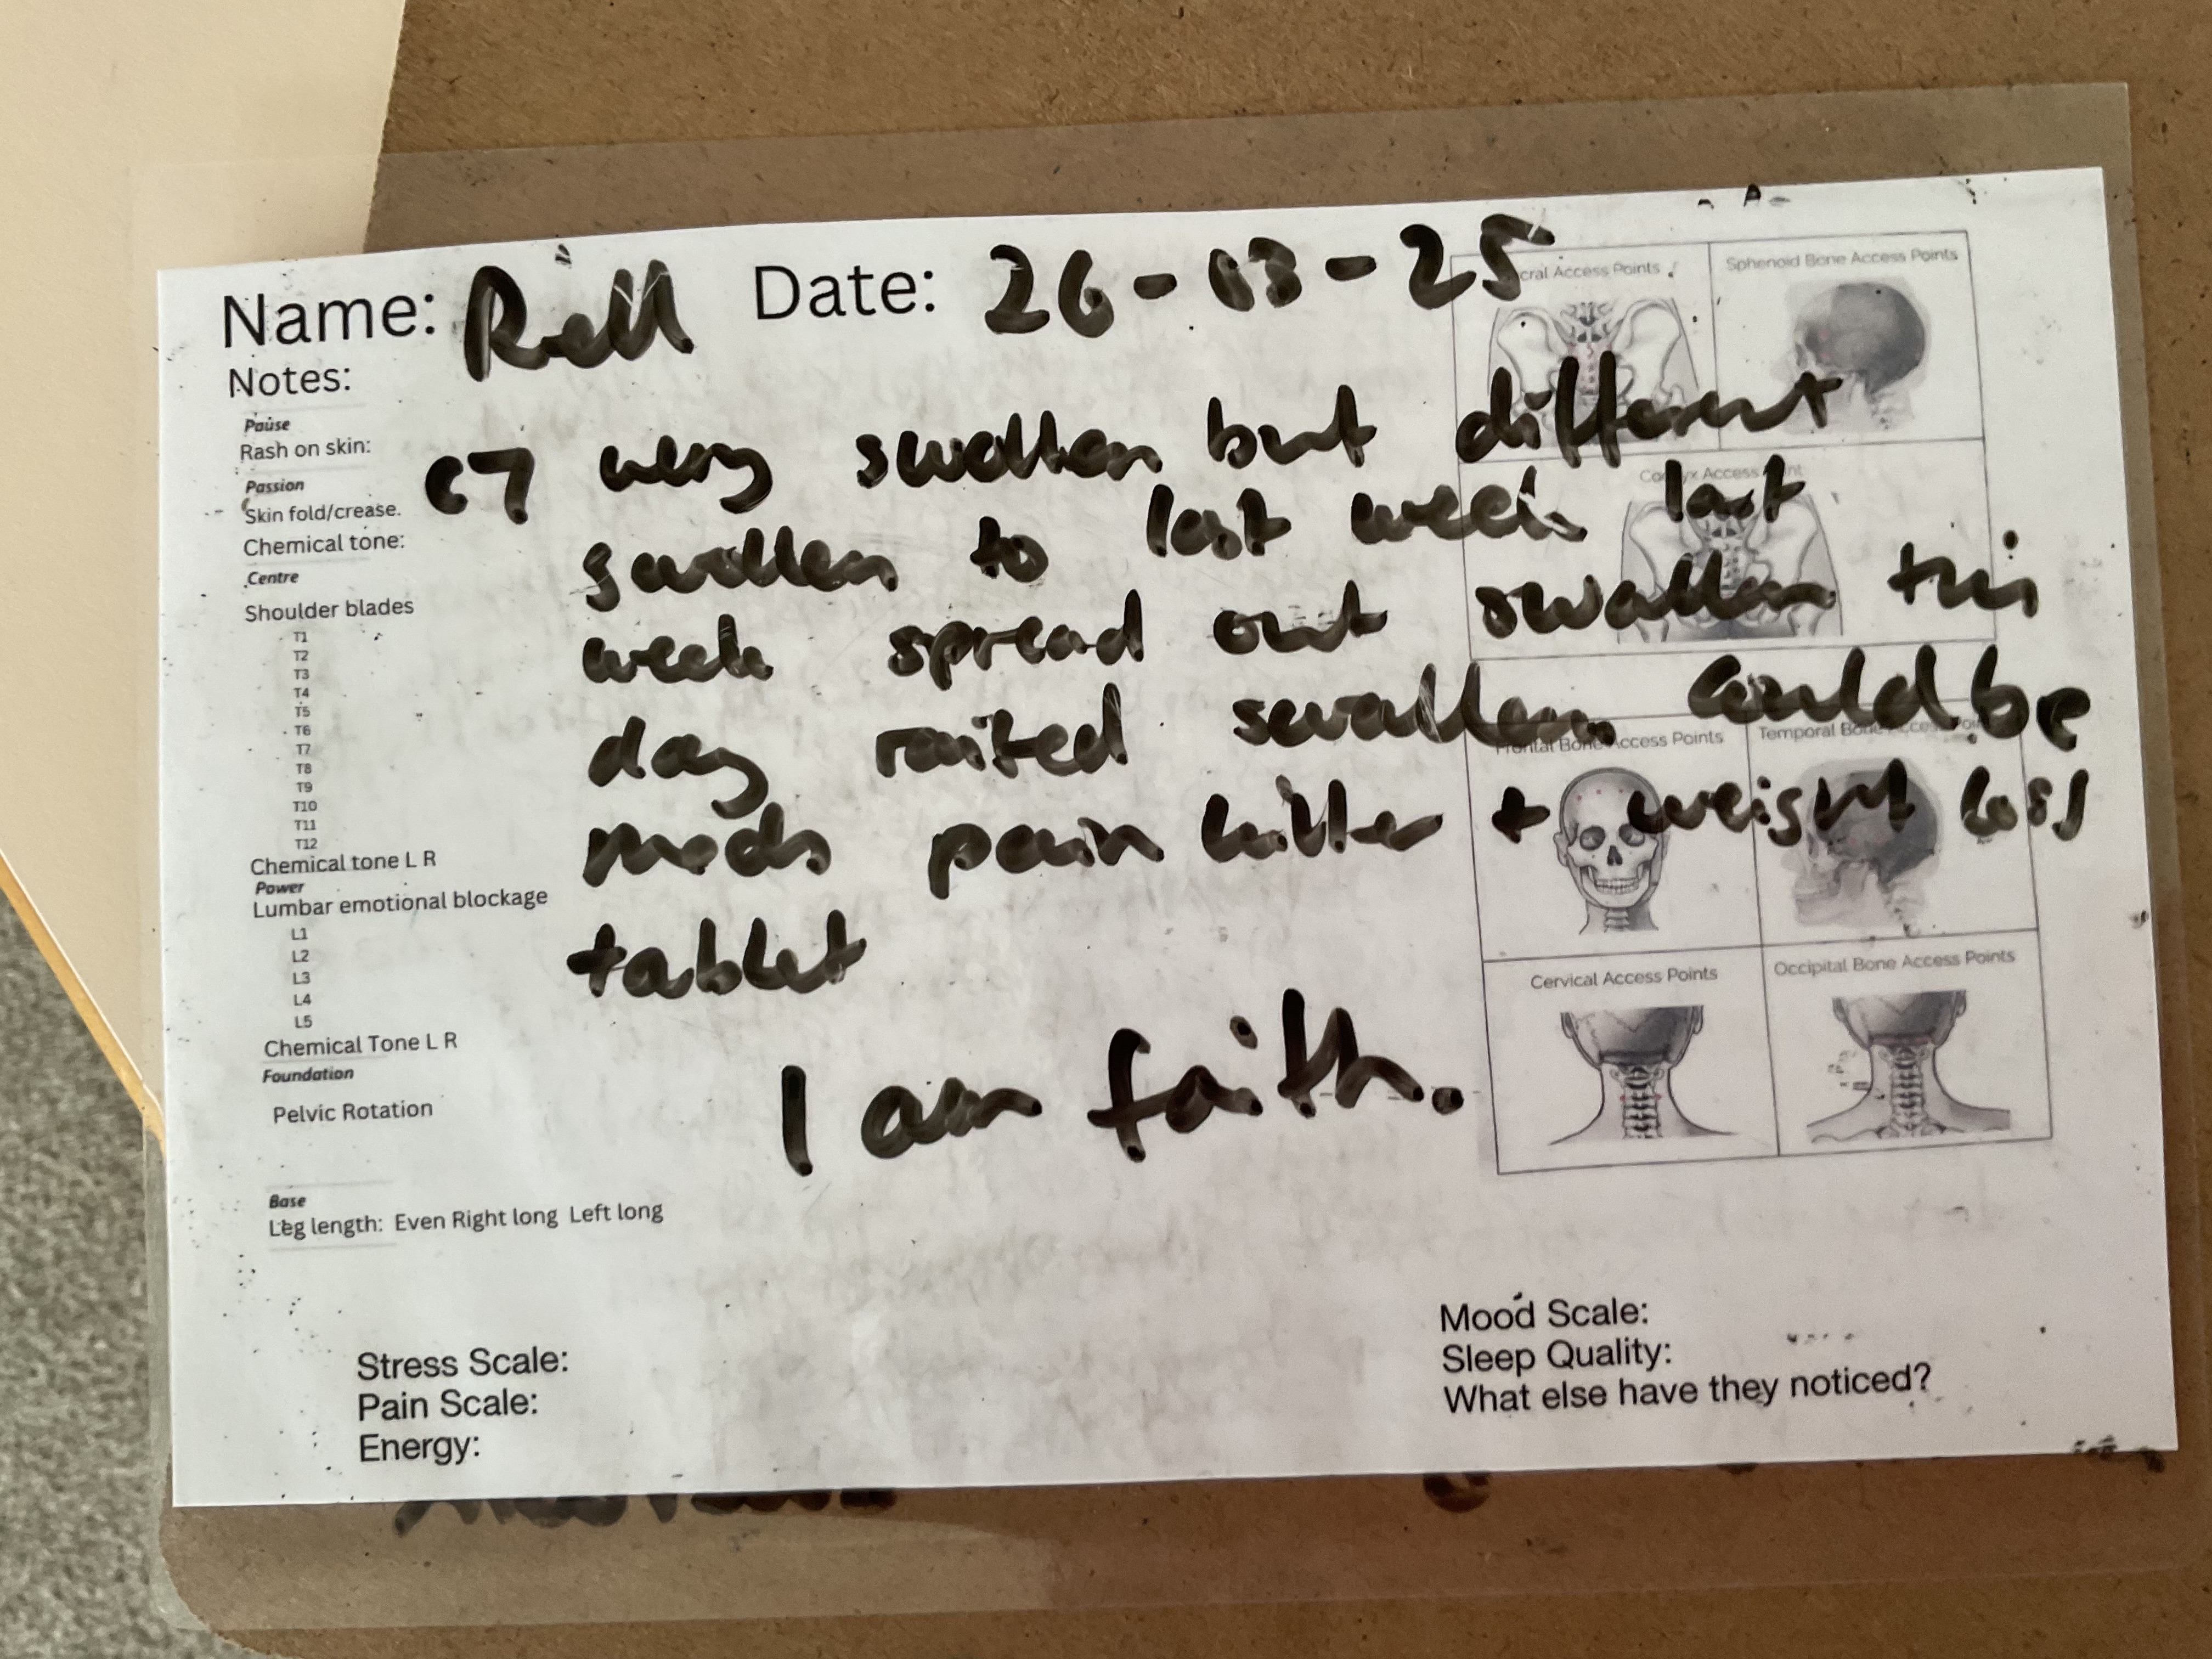 Name: Rell Date: 26-03-25
Notes:
Pause
Rash on skin:
Passion
Skin fold/crease.
Chemical tone:
Centre
Shoulder blades
T1
T2
T3
T4
T5
T6
T7
T8
T9
T10
T11
T12
Chemical tone L R
Power
Lumbar emotional blockage
L1
L2
L3
L4
L5
Chemical Tone L R
Foundation
Pelvic Rotation
Base
Leg length: Even Right long Left long
C7 very swollen but different
swollen to last week last
week spread out swollen this
day raised swollen could be
meds pain killer + weight loss
tablet
I am faith.
cral Access Points
Sphenoid Bone Access Points
Access
Frontal Bone Access Points
Temporal Bone Access Points
Cervical Access Points
Occipital Bone Access Points
Stress Scale:
Pain Scale:
Energy:
Mood Scale:
Sleep Quality:
What else have they noticed?